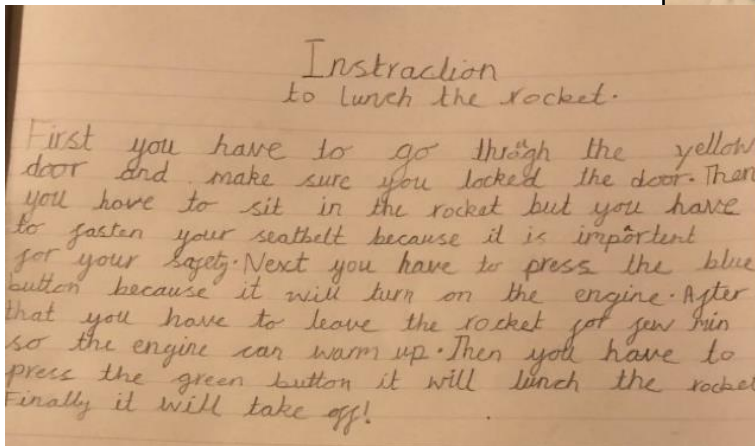 Instraction
to lunch the rocket.
First you have to go through the yellow
door and make sure you locked the door. Then
you have to sit in the rocket but you have
to fasten your seatbelt because it is importent
for your safety. Next you have to press the blue
button because it will turn on the engine. After
that you have to leave the rocket for few min
so the engine can warm up. Then you have to
press the green button it will lunch the rocket
Finally it will take off!